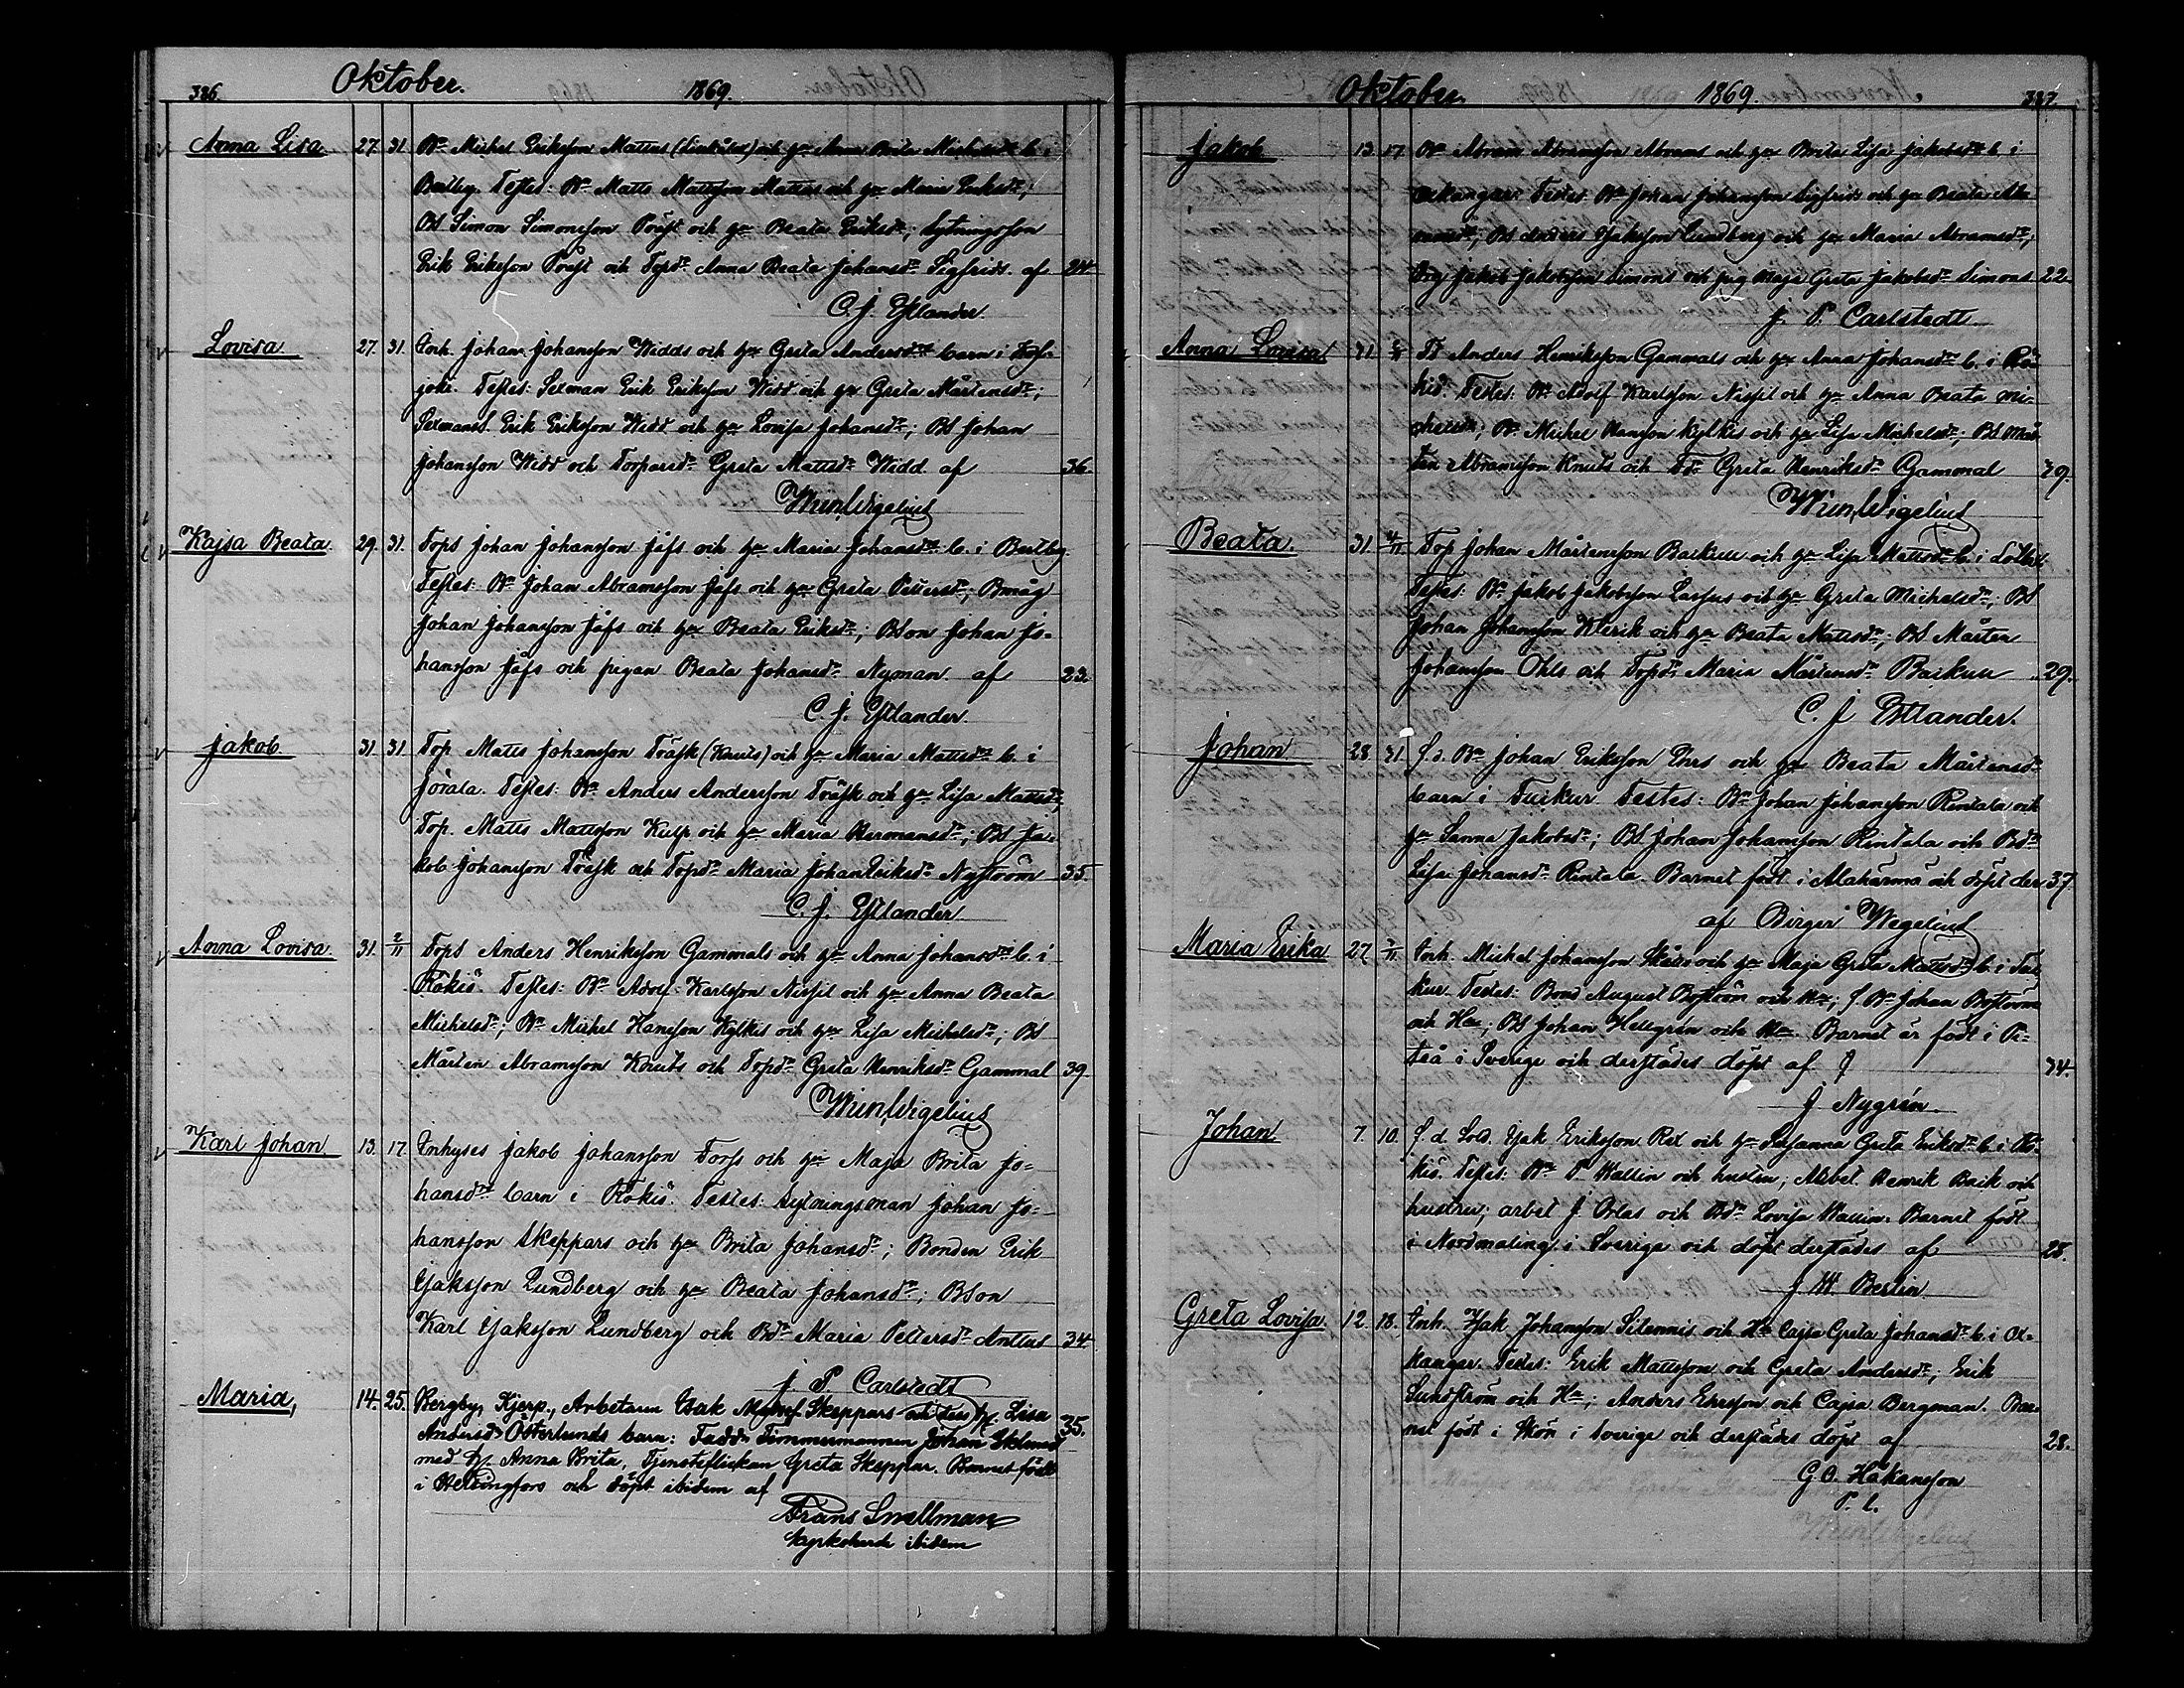 386. Oktober. 1869.
Anna Lisa 27. 31. Bn Michel Eriksson Mattus och hu Anna Brita b. i
Bertby. Testes: Bn Matts Mattsson Mattus och hu Maria Eriksdr;
BS Simon Simonsson Präst och hu Beata Eriksdr; Sytningsson
Erik Eriksson Präst och Topdr Anna Beata Johansdr Sigfrids. af 24.
C. J. Estlander.
Lovisa 27. 31. Inh. Johan Johansson Widds och hu Greta Andersdrs barn i Kos-
joki. Testes: Sexman Erik Eriksson Widd och hu Greta Mårtensdr;
Sexmans Erik Eriksson Widd och hu Lovisa Johansdr; BS Johan
Johansson Widd och Torparedr Greta Mattsdr Widd. af 36.
Wm Wigelius
Kajsa Beata. 29. 31. Tops Johan Johansson Jåfs och hu Maria Johansdrs b. i Bertby
Testes: Bn Johan Abramsson Jåfs och hu Greta Pettersdr; Bmåg
Johan Johansson Jåfs och hu Beata Eriksdr; BSon Johan Jo-
hansson Jåfs och pigan Beata Johansdr Nyman. af 23.
C. J. Estlander.
Jakob. 31. 31. Top. Matts Johansson Träsk (Knuts) och hu Maria Mattsdrs b. i
Jörala. Testes: Bn Anders Andersson Träsk och hu Lisa Mattsdr;
Top. Matts Mattsson Kulp och hu Maria Hermansdr; BS Ja-
kob Johansson Träsk och Topdr Maria Johan Eriksdr Nyström 35.
C. J. Estlander
Anna Lovisa. 31. 2/11 Tops Anders Henriksson Gammals och hu Anna Johansdrs b. i
Rökiö. Testes: Bn Adolf Karlsson Nissil och hu Anna Beata
Michelsdr; Bn Michel Hansson Kylkis och hu Lisa Michelsdr; BS
Mårten Abramsson Knuts och Topdr Greta Henriksdr Gammal 39.
Wm Wigelius
Karl Johan. 13. 17. Inhyses Jakob Johansson Forss och hu Maja Brita Jo-
hansdrs barn i Rökiö. Testes: Sytningsman Johan Jo-
hansson Skeppars och hu Brita Johansdr; Bonden Erik
Isaksson Lundberg och hu Beata Johansdr; BSon
Karl Isaksson Lundberg och Bdr Maria Pettersdr Antus 34.
J. P. Carlstedt
Maria, 14. 25. Bergby, Kjerp., Arbetaren Isak Skeppars och dess hu. Lisa
Andersdr Österlunds barn: Faddr Timmermannen Johan Eklund
med hu Anna Brita, Tjensteflickan Greta Skeppar. Barnet född
i Helsingfors och döpt ibidem af 35.
Frans Snellman
Kyrkoherde ibidem
Oktober. 1869. 387.
Jakob 13. 17. Bn Abram Abramsson Abrams och hu Brita Lisa Jakobsdr b i
Oxkangar. Testes: Bn Johan Johansson Sigfrids och hu Beata Ab-
ramsdr; BS Anders Isaksson Lundberg och hu Maria Abramsdr;
Drg Jakob Jakobsson Simons och pig Maja Greta Jakobsdr Simons 22.
J. P. Carlstedt
Anna Lovisa 31. 2/11 TS Anders Henriksson Gammals och hu Anna Johansdrs b. i Rö-
kiö. Testes: Bn Adolf Karlsson Nissil och hu Anna Beata Mi-
chelsdr; Bn Michel Hansson Kylkis och hu Lisa Michelsdr; BS Mår-
ten Abramsson Knuts och Tdr Greta Henriksdr Gammal 39.
Wm Wigelius
Beata. 31. 4/11 Top Johan Mårtensson Backull och hu Lisa Mattsdr b. i
Testes: Bn Jakob Jakobsson Lassus och hu Greta Michelsdr; BS
Johan Johansson Klerik och hu Beata Mattsdr; BS Mårten
Johansson Ohls och Topdr Maria Mårtensdr Backull 29.
C. J Estlander.
Johan 28 31. f. d. Bn Johan Eriksson Ehrs och hu Beata Mårtensdr
barn i Tuckur. Testes: Bn Johan Johansson Rintala och
hu Sanna Jakobsdr; BS Johan Johansson Rintala och Bdr
Lisa Johansdr Rintala. Barnet född i Alahärmä och döpt der 37.
af Birger Wegelius
Maria Erika 27. Inh. Michel Johansson och hu Maja Greta Mattsdrs b. i Tuc-
kur. Testes: Bond August Boström och Hu; f. Bn Johan Boström
och Hu; BS Johan Hellgren och Hu. Barnet är född i Pi-
teå i Sverige och derstädes döpt af 34.
J Nygrén.
Johan 7. 10. f. d. Sold. Isak Eriksson Rex och hu Susanna Greta Eriksdr b. i Rö-
kiö. Testes: Bn P Wallin och hustru; Arbet. Henrik Back och
hustru; arbet J Orlas och Bdr Lovisa Wallin. Barnet född
i Nordmaling i Sverige och döpt derstädes af 28.
J W Berlin
Greta Lovisa 12. 18. Inh. Isak Johansson och Hu Cajsa Greta Johansdr b. i Ox-
kangar. Testes: Erik Mattsson och Greta Andersdr; Erik
Sundström och Hu; Anders Ersson och Cajsa Bergman. Bar-
net född i Skön i Sverige och derstädes döpt af 28.
G. O. Håkansson
P. l.